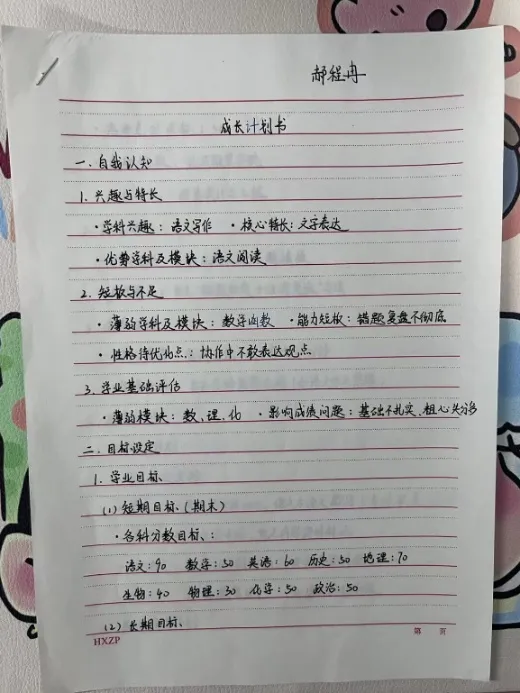 郝程冉
成长计划书
一.自我认知
1.兴趣与特长
·学科兴趣：语文写作 ·核心特长：文字表达
·优势学科及模块：语文阅读
2.短板与不足
·薄弱学科及模块：数学函数 ·能力短板：错题复盘不彻底
·性格待优化点：协作中不敢表达观点
3.学业基础评估
·薄弱模块：数、理、化 ·影响成绩问题：基础不扎实、粗心失分多
二.目标设定
1.学业目标、
(1)短期目标、(期末)
·各科分数目标、：
语文：90 数学：50 英语：60 历史：50 地理：70
生物：40 物理：30 化学：50 政治：50
(2)长期目标、
HXZP 第 页